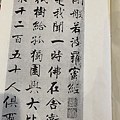 剛般若波羅蜜經
是我聞一時佛在舍衛
樹給孤獨園與大比
千二百五十人俱